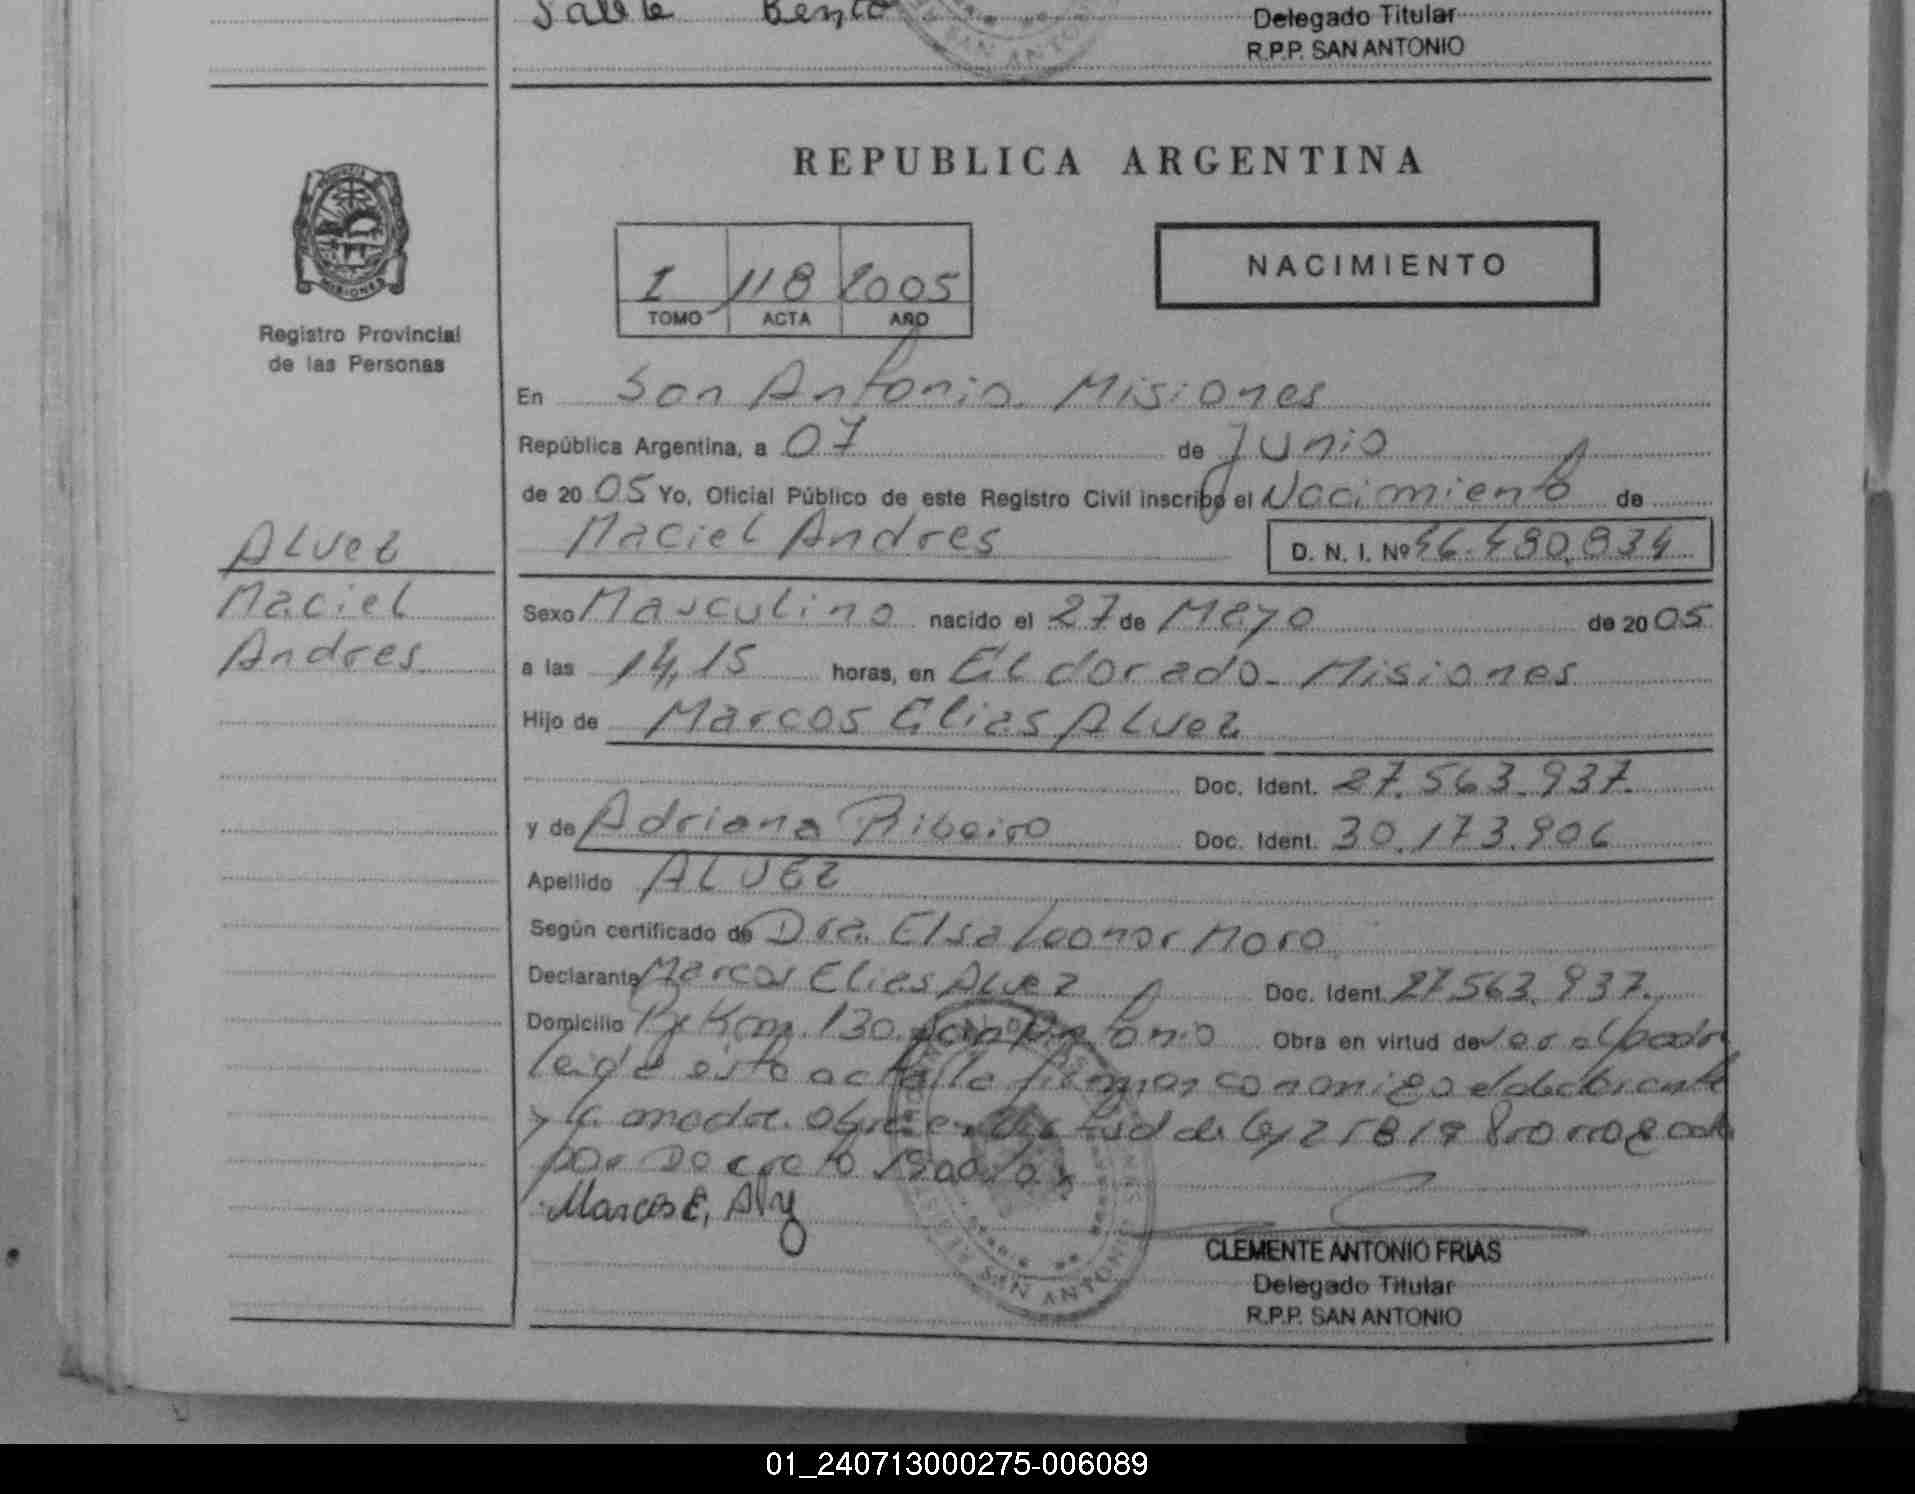 Bento
Delegado Titular
R.P.P. SAN ANTONIO
SAN ANTONIO
REPUBLICA ARGENTINA
I 118 2005
TOMO ACTA AÑO
NACIMIENTO
MISIONES
Registro Provincial
de las Personas
En San Antonio. Misiones
República Argentina, a 07 de Junio
de 2005 Yo, Oficial Público de este Registro Civil inscribo el Nacimiento de
Maciel Andres D. N. I. Nº 46.480.834
ALvez
Maciel
Andres
Sexo Masculino nacido el 27 de Mayo de 2005
a las 14,15 horas, en ELdorado - Misiones
Hijo de Marcos Elias ALvez
Doc. Ident. 27.563.937.
y de Adriana Ribeiro Doc. Ident. 30.173.906
Apellido ALVEZ
Según certificado de Dra. Elsa Leonor Moro
Declarante Marcos Elias Alvez Doc. Ident. 27.563.937.
Domicilio Km. 130 San Antonio Obra en virtud de ser el padre
leida esta acta la firman conmigo el declarante
y la madre. Obra en virtud de Ley 25819 Prorrogada
por Decreto
Marcos E, Alv
CLEMENTE ANTONIO FRIAS
Delegado Titular
R.P.P. SAN ANTONIO
SAN ANTONIO
01_240713000275-006089